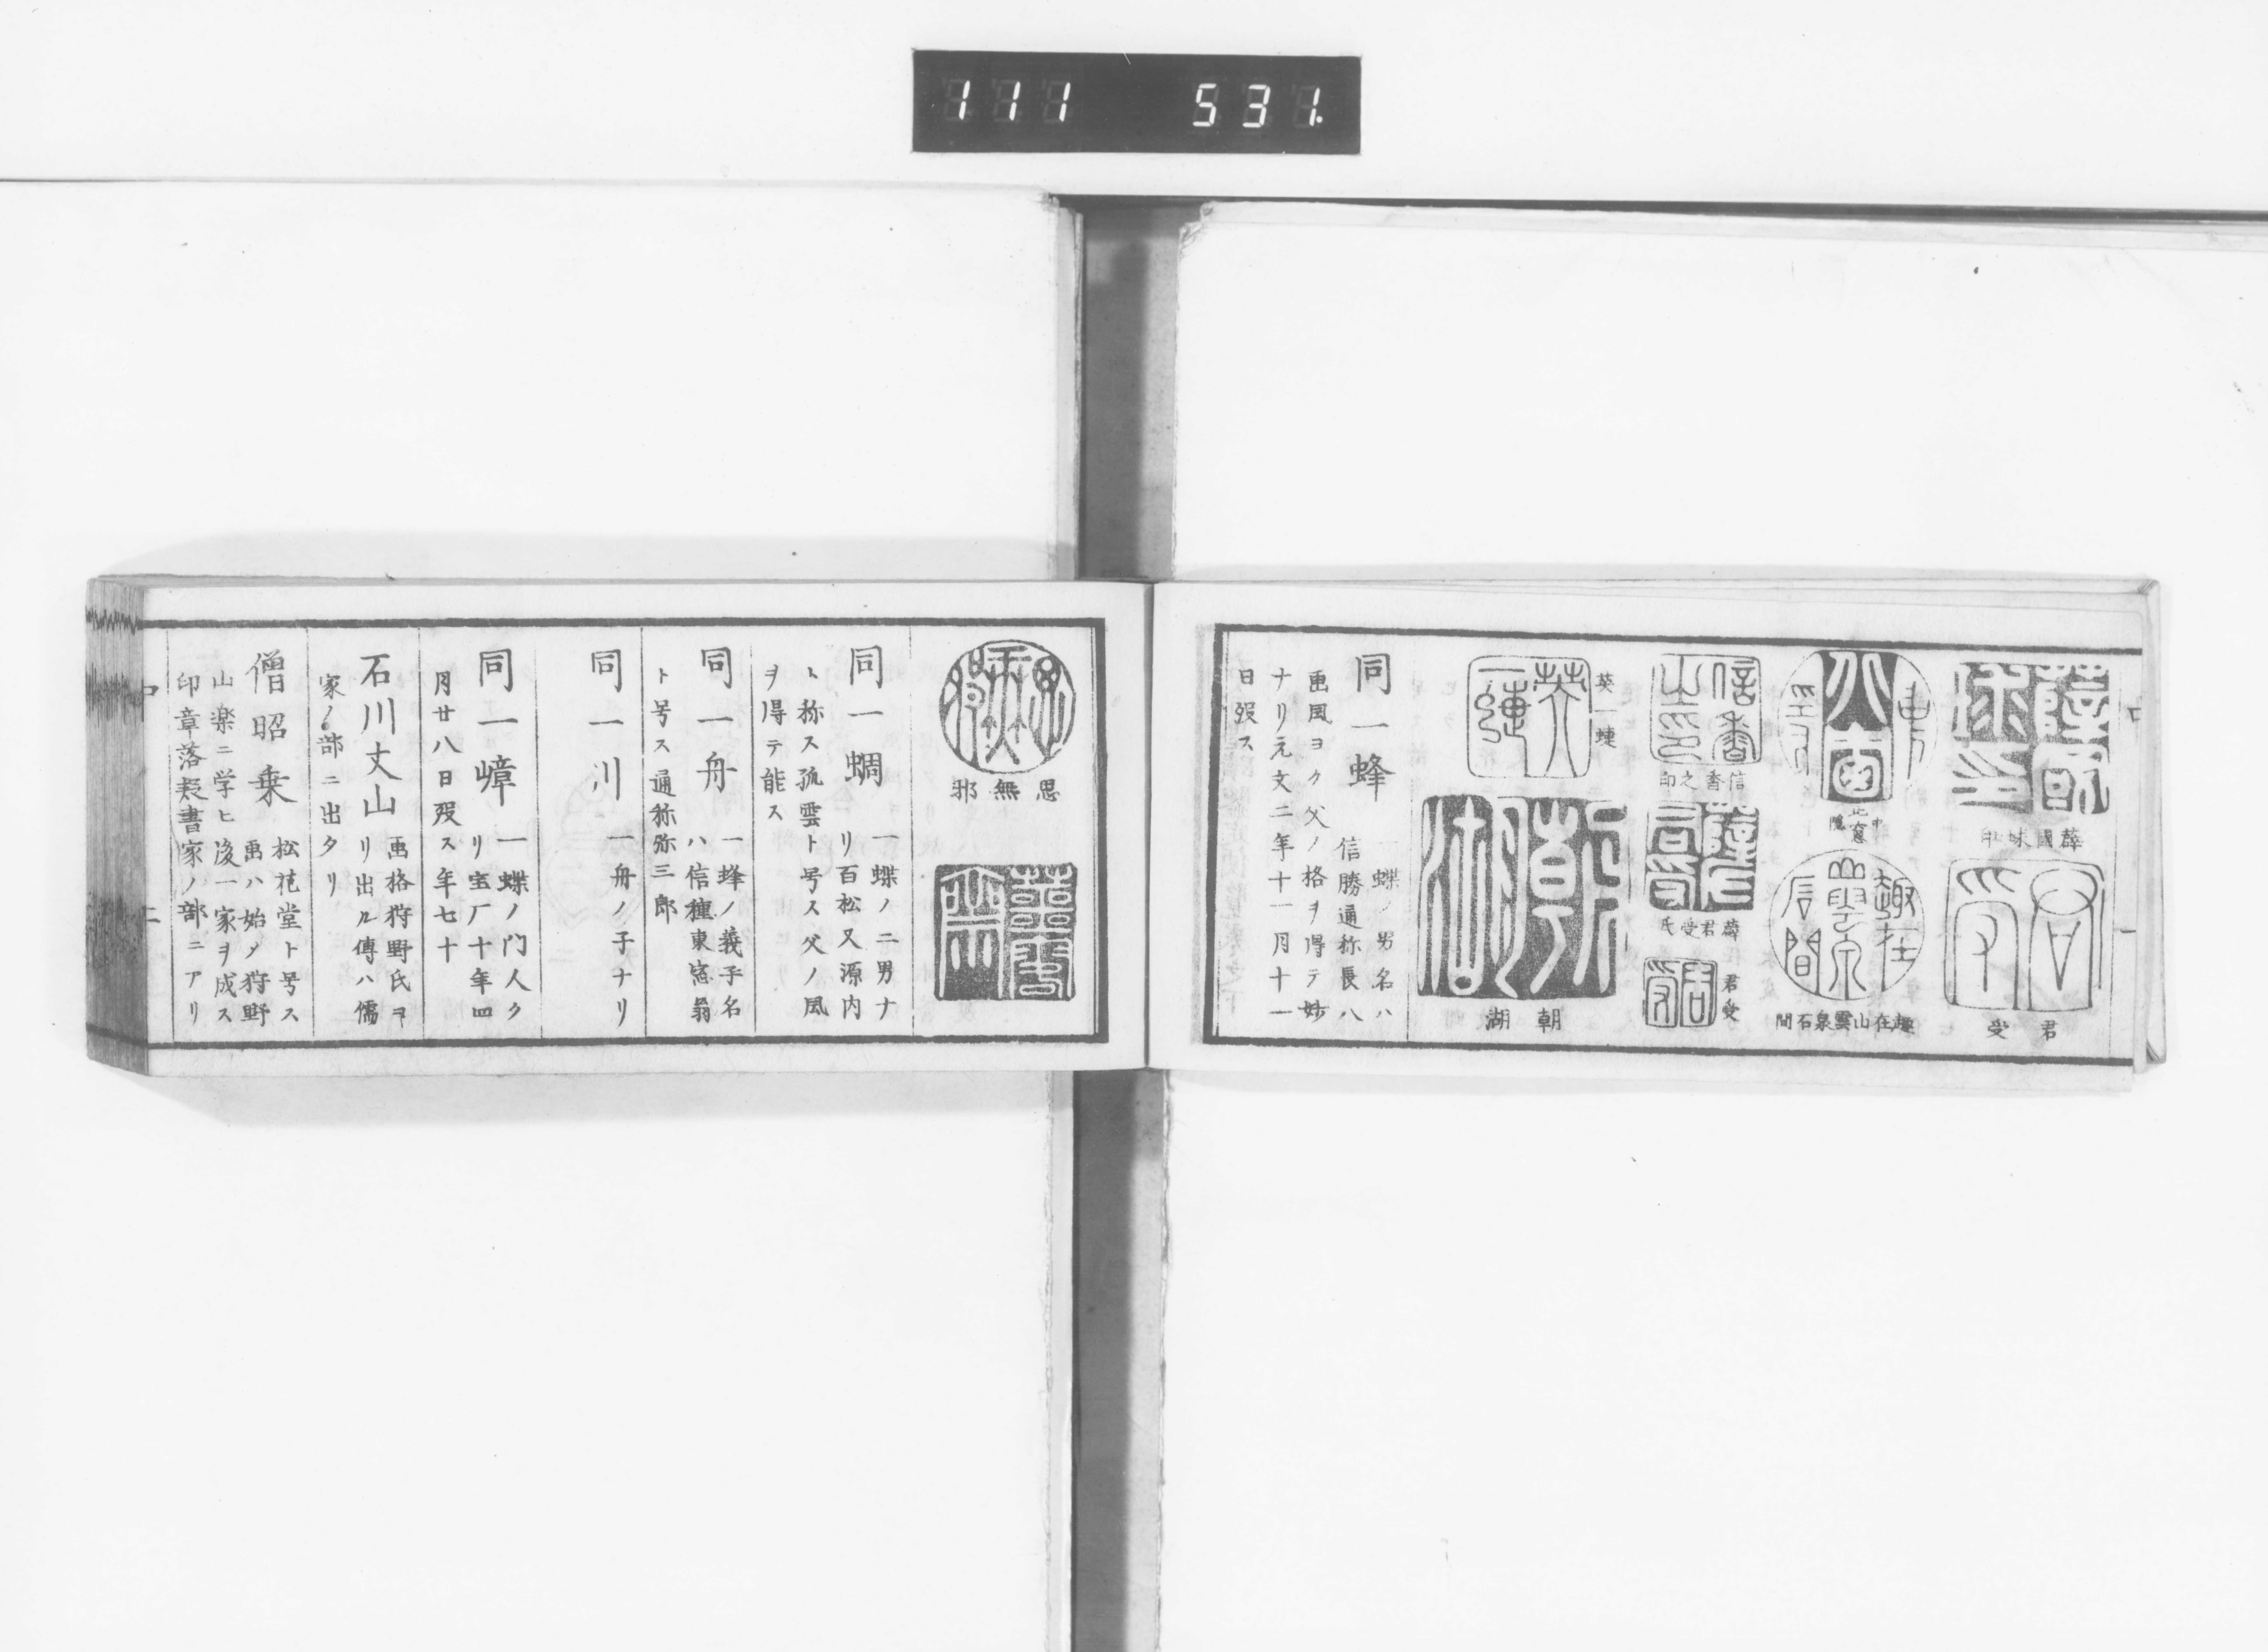 111 531.
薛國球印
君受
趣在山雲泉石間
信香之印
薛君受氏
君受
英一蜨
朝湖
同一蜂
一蝶ノ男名ハ
信勝通称長八
画風ヨク父ノ格ヲ得テ妙
ナリ元文二年十一月十一
日歿ス
思無邪
同一蜩
一蝶ノ二男ナ
リ百松又源内
ト称ス孤雲ト号ス父ノ風
ヲ得テ能ス
同一舟
一蜂ノ義子名
ハ信種東窓翁
ト号ス通称弥三郎
同一川
一舟ノ子ナリ
同一嶂
一蝶ノ门人ク
リ宝厂十年四
月廿八日歿ス年七十
石川丈山
画格狩野氏ヨ
リ出ル傳ハ儒
家ノ部ニ出タリ
僧昭乗
松花堂ト号ス
画ハ始メ狩野
山楽ニ学ヒ後一家ヲ成ス
印章落款書家ノ部ニアリ
二